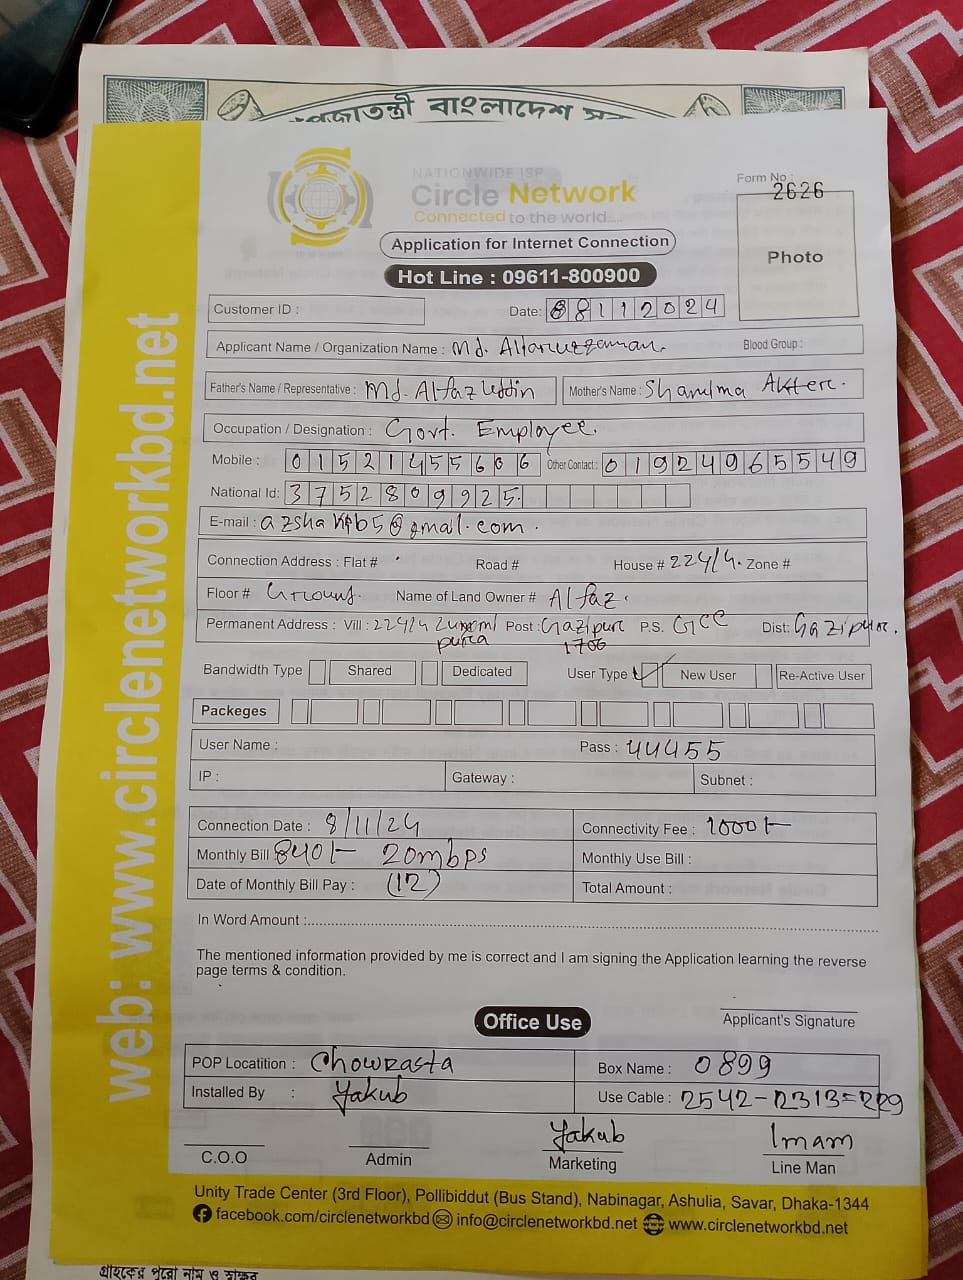 বাংলাদেশ
web: www.circlenetworkbd.net
NATIONWIDE ISP
Circle Network
Connected to the world....
Form No :
2626
Application for Internet Connection
Hot Line : 09611-800900
Photo
Customer ID :
Date: 08112024
Applicant Name / Organization Name : Md. Blood Group :
Father's Name / Representative : Md. Alfaz Uddin Mother's Name : Akter.
Occupation / Designation : Govt. Employee.
Mobile : 01521455606 Other Contact : 01924965549
National Id: 3752809925.
E-mail : @gmail.com.
Connection Address : Flat # Road # House # 224/4. Zone #
Floor # Ground. Name of Land Owner # Alfaz.
Permanent Address : Vill : 224/4 Post : Gazipur P.S. GCC Dist: Gazipur.
para 1700
Bandwidth Type Shared Dedicated User Type ✓ New User Re-Active User
Packeges
User Name : Pass : 44455
IP : Gateway : Subnet :
Connection Date : 8/11/24 Connectivity Fee : 1000/-
Monthly Bill 840/- 20mbps Monthly Use Bill :
Date of Monthly Bill Pay : (12) Total Amount :
In Word Amount :
The mentioned information provided by me is correct and I am signing the Application learning the reverse
page terms & condition.
Applicant's Signature
Office Use
POP Locatition : Chowrasta Box Name : 0899
Installed By : Yakub Use Cable : 2542-2313=229
Yakub Imam
C.O.O Admin Marketing Line Man
Unity Trade Center (3rd Floor), Pollibiddut (Bus Stand), Nabinagar, Ashulia, Savar, Dhaka-1344
facebook.com/circlenetworkbd info@circlenetworkbd.net www.circlenetworkbd.net
গ্রাহকের পুরো নাম ও স্বাক্ষর